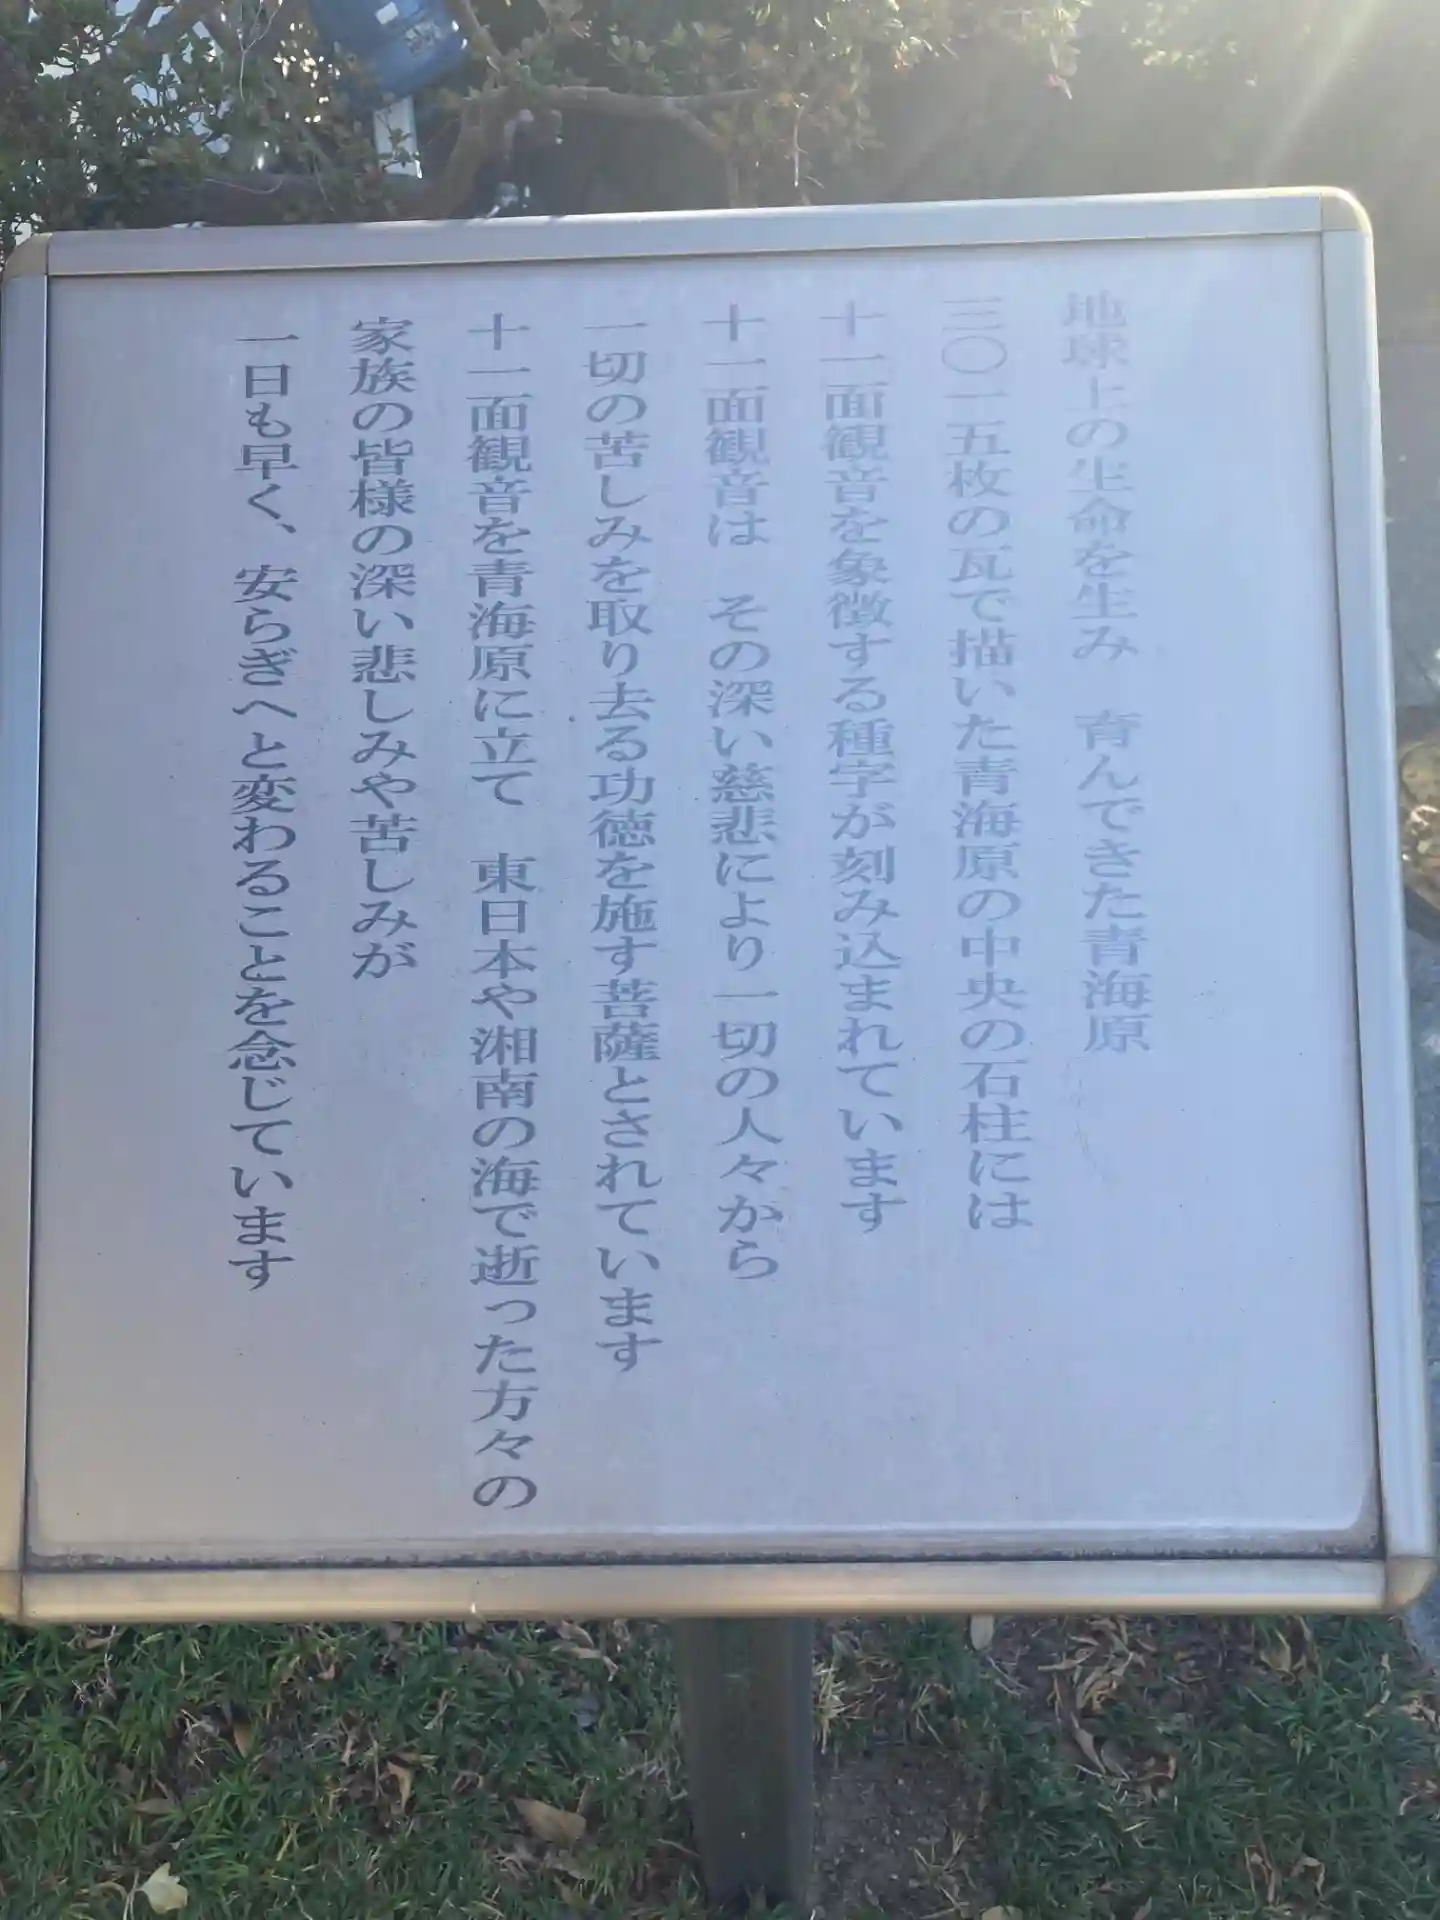 地球上の生命を生み　育んできた青海原
三〇一五枚の瓦で描いた青海原の中央の石柱には
十一面観音を象徴する種字が刻み込まれています
十一面観音は　その深い慈悲により一切の人々から
一切の苦しみを取り去る功徳を施す菩薩とされています
十一面観音を青海原に立て　東日本や湘南の海で逝った方々の
家族の皆様の深い悲しみや苦しみが
一日も早く、安らぎへと変わることを念じています